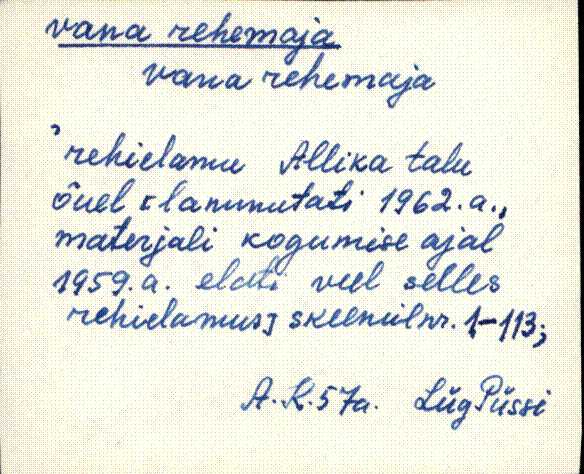 vana rehemaja
vana rehemaja
'rehielamu Allika talu
õuel [lammutati 1962.a.,
materjali kogumise ajal
1959.a. elati veel selles
rehielamus] skeemil nr. 1-113;
A.K.57a. Lüg Püssi